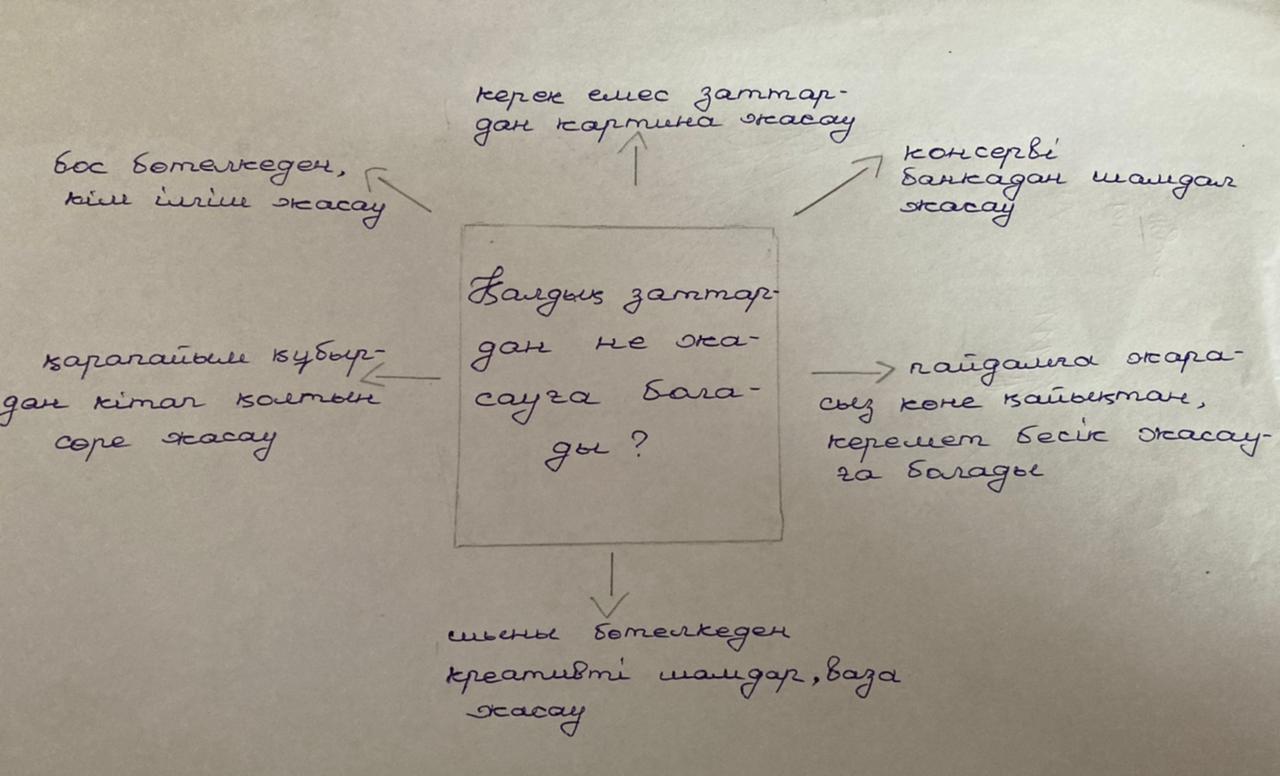 керек емес заттар-
дан картина жасау
бос бөтелкеден,
кім ілгіш жасау
консерві
банкадан шамдал
жасау
Қалдық заттар-
дан не жа-
сауға бола-
ды?
қарапайым құбыр-
дан кітап қолтын
сөре жасау
пайдамға жара-
сыз көне қайықтан,
керемет бесік жасау-
ға болады
шыны бөтелкеден
креативті шамдар, ваза
жасау